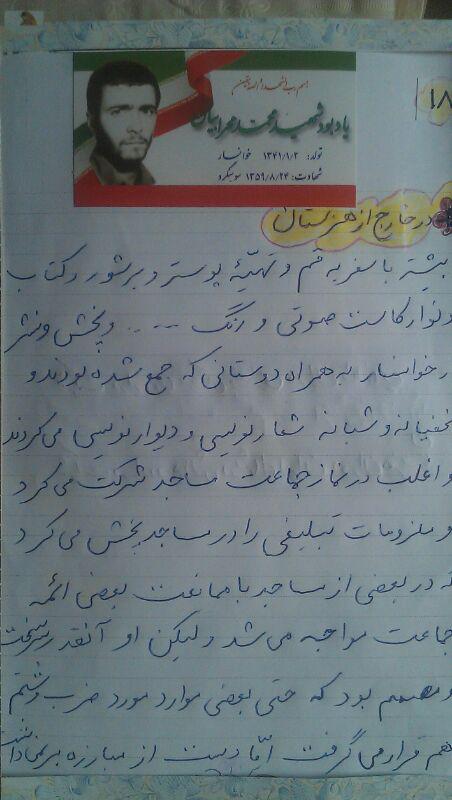 ۱۸
بسم رب الشهداء والصدیقین
یادبود شهید محمد مهرابیان
تولد: ۱۳۴۱/۱/۲ خوانسار
شهادت: ۱۳۵۹/۸/۲۴ سوسنگرد
در خارج از هنرستان
بیشتر با سفر به قم و تهیّهٔ پوستر و بروشور و کتاب
و نوار کاست صوتی و رنگ ---- و پخش و نشر
در خوانسار به همراه دوستانی که جمع شده بودند و
مخفیانه و شبانه شعارنویسی و دیوارنویسی می‌کردند
و اغلب در نماز جماعت مساجد شرکت می‌کرد
و ملزومات تبلیغی را در مساجد پخش می‌کرد
که در بعضی از مساجد با ممانعت بعضی ائمه
جماعت مواجه می‌شد ولیکن او آنقدر سرسخت
و مصمم بود که حتی بعضی موارد مورد ضرب و شتم
هم قرار می‌گرفت امّا دست از مبارزه برنمی‌داشت